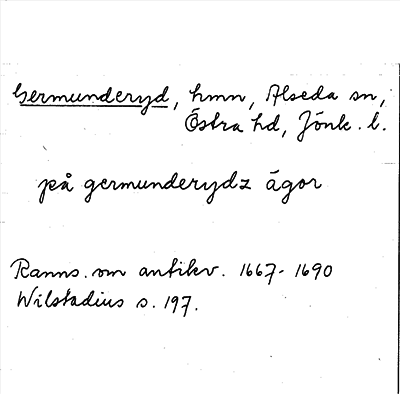 Germunderyd, hmn, Alseda sn,
Östra hd, Jönk. l.
på germunderydz ägor
Ranns. om antikv. 1667-1690
Wilstadius s. 197.